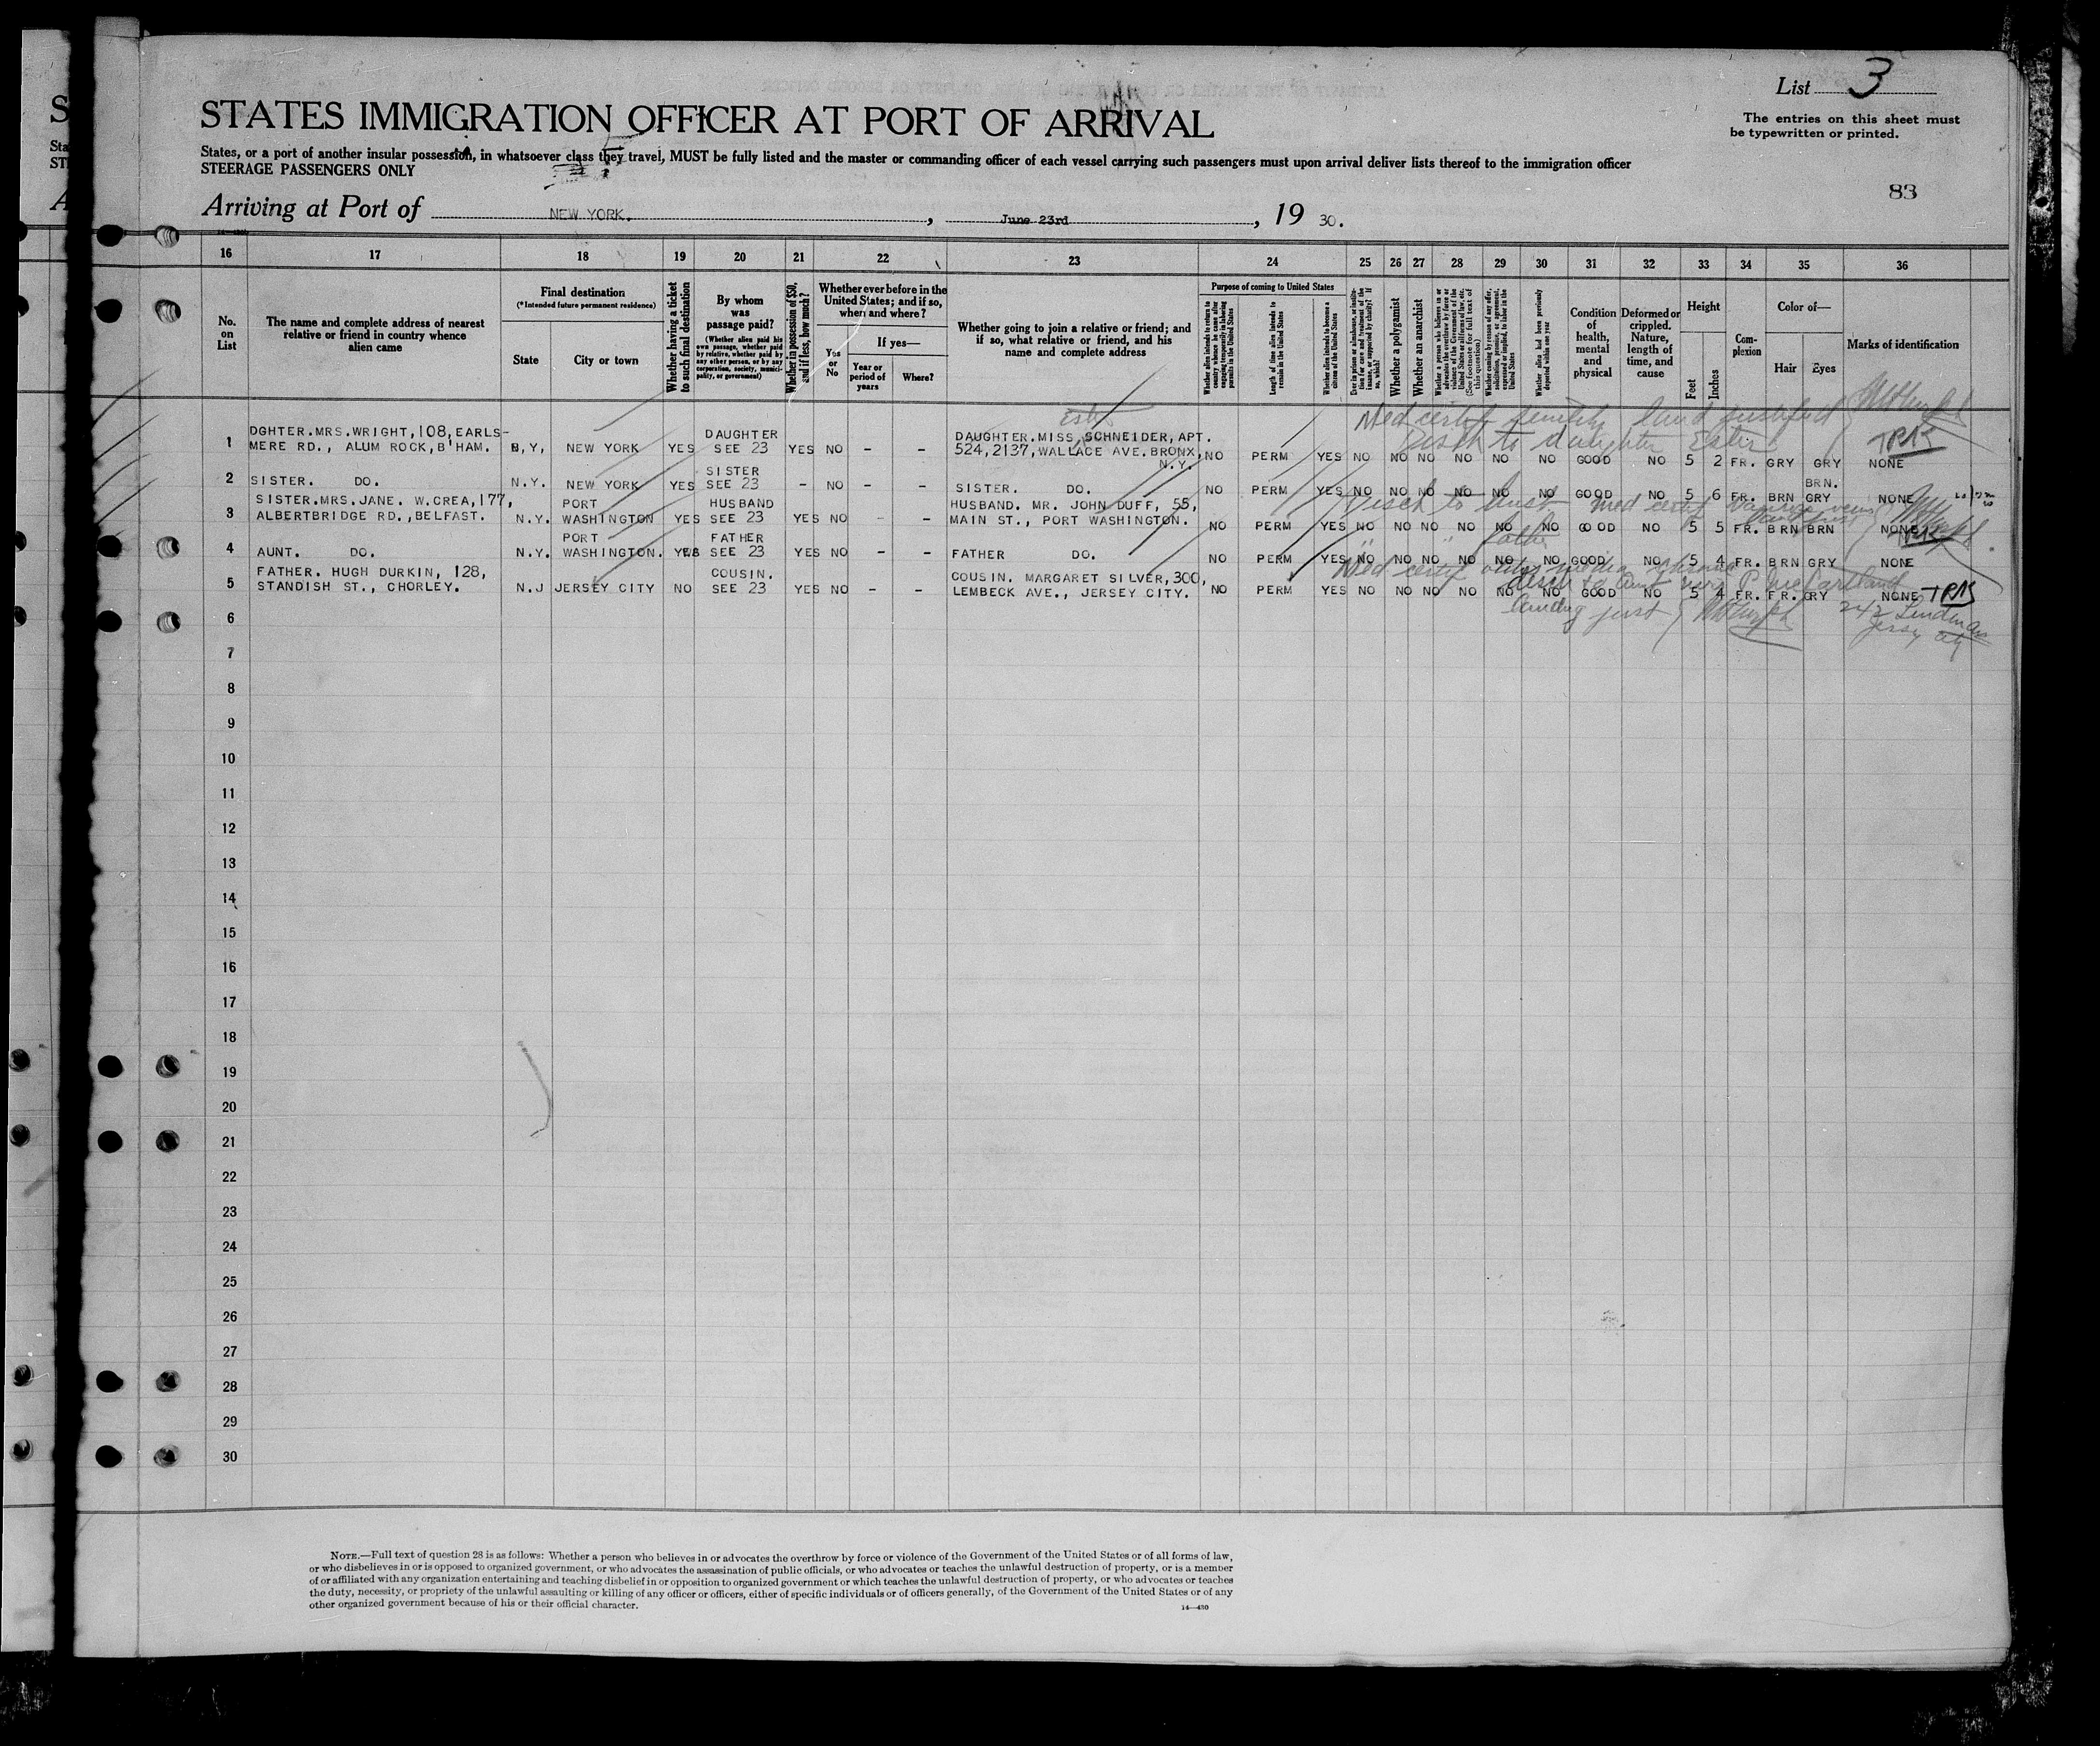 List 3
STATES IMMIGRATION OFFICER AT PORT OF ARRIVAL
The entries on this sheet must
be typewritten or printed.
States, or a port of another insular possession, in whatsoever class they travel, MUST be fully listed and the master or commanding officer of each vessel carrying such passengers must upon arrival deliver lists thereof to the immigration officer
STEERAGE PASSENGERS ONLY
83
Arriving at Port of NEW YORK. , June 23rd , 19 30.
16 17 18 19 20 21 22 23 24 25 26 27 28 29 30 31 32 33 34 35 36
No.
on
List
The name and complete address of nearest
relative or friend in country whence
alien came
Final destination
(*Intended future permanent residence)
State
City or town
Whether having a ticket
to such final destination
By whom
was
passage paid?
(Whether alien paid his
own passage, whether paid
by relative, whether paid by
any other person, or by any
corporation, society, munici-
pality, or government)
Whether in possession of $50,
and if less, how much?
Whether ever before in the
United States; and if so,
when and where?
Yes
or
No
If yes—
Year or
period of
years
Where?
Whether going to join a relative or friend; and
if so, what relative or friend, and his
name and complete address
Purpose of coming to United States
Whether alien intends to return to
country whence he came after
engaging temporarily in laboring
pursuits in the United States
Length of time alien intends to
remain in the United States
Whether alien intends to become a
citizen of the United States
Ever in prison or almshouse, or institu-
tion for care and treatment of the
insane, or supported by charity? If
so, which?
Whether a polygamist
Whether an anarchist
Whether a person who believes in or
advocates the overthrow by force or
violence of the Government of the
United States or all forms of law, etc.
(See footnote for full text of
this question)
Whether coming by reason of any offer,
solicitation, promise, or agreement,
expressed or implied, to labor in the
United States
Whether alien had been previously
deported within one year
Condition
of
health,
mental
and
physical
Deformed or
crippled.
Nature,
length of
time, and
cause
Height
Feet
Inches
Com-
plexion
Color of—
Hair
Eyes
Marks of identification
Med certif senility land justified
Disch to daughter Ester
TPK
1 DGHTER.MRS.WRIGHT,108,EARLS-
MERE RD., ALUM ROCK,B'HAM. N,Y, NEW YORK YES DAUGHTER
SEE 23 YES NO – – DAUGHTER.MISS,SCHNEIDER,APT.
524,2137,WALLACE AVE.BRONX,
N.Y. NO PERM YES NO NO NO NO NO NO GOOD NO 5 2 FR. GRY GRY NONE
2 SISTER. DO. N.Y. NEW YORK YES SISTER
SEE 23 – NO – – SISTER. DO. NO PERM YES NO NO NO NO NO NO GOOD NO 5 6 FR. BRN BRN.
GRY NONE
Disch to husb med certif varicose veins
3 SISTER.MRS.JANE. W.CREA,177,
ALBERTBRIDGE RD.,BELFAST. N.Y. PORT
WASHINGTON YES HUSBAND
SEE 23 YES NO – – HUSBAND. MR. JOHN DUFF, 55,
MAIN ST., PORT WASHINGTON. NO PERM YES NO NO NO NO NO NO GOOD NO 5 5 FR. BRN BRN NONE
" " father
4 AUNT. DO. N.Y. PORT
WASHINGTON. YES FATHER
SEE 23 YES NO – – FATHER DO. NO PERM YES NO NO NO NO NO NO GOOD NO 5 4 FR. BRN GRY NONE
Med certif otitis media
disch to Aunt
5 FATHER. HUGH DURKIN, 128,
STANDISH ST., CHORLEY. N.J JERSEY CITY NO COUSIN.
SEE 23 YES NO – – COUSIN. MARGARET SILVER,300,
LEMBECK AVE., JERSEY CITY. NO PERM YES NO NO NO NO NO NO GOOD NO 5 4 FR. FR. GRY NONE TPK
landing just
Jersey City
6
7
8
9
10
11
12
13
14
15
16
17
18
19
20
21
22
23
24
25
26
27
28
29
30
NOTE.—Full text of question 28 is as follows: Whether a person who believes in or advocates the overthrow by force or violence of the Government of the United States or of all forms of law,
or who disbelieves in or is opposed to organized government, or who advocates the assassination of public officials, or who advocates or teaches the unlawful destruction of property, or is a member
of or affiliated with any organization entertaining and teaching disbelief in or opposition to organized government or which teaches the unlawful destruction of property, or who advocates or teaches
the duty, necessity, or propriety of the unlawful assaulting or killing of any officer or officers, either of specific individuals or of officers generally, of the Government of the United States or of any
other organized government because of his or their official character.
14—430